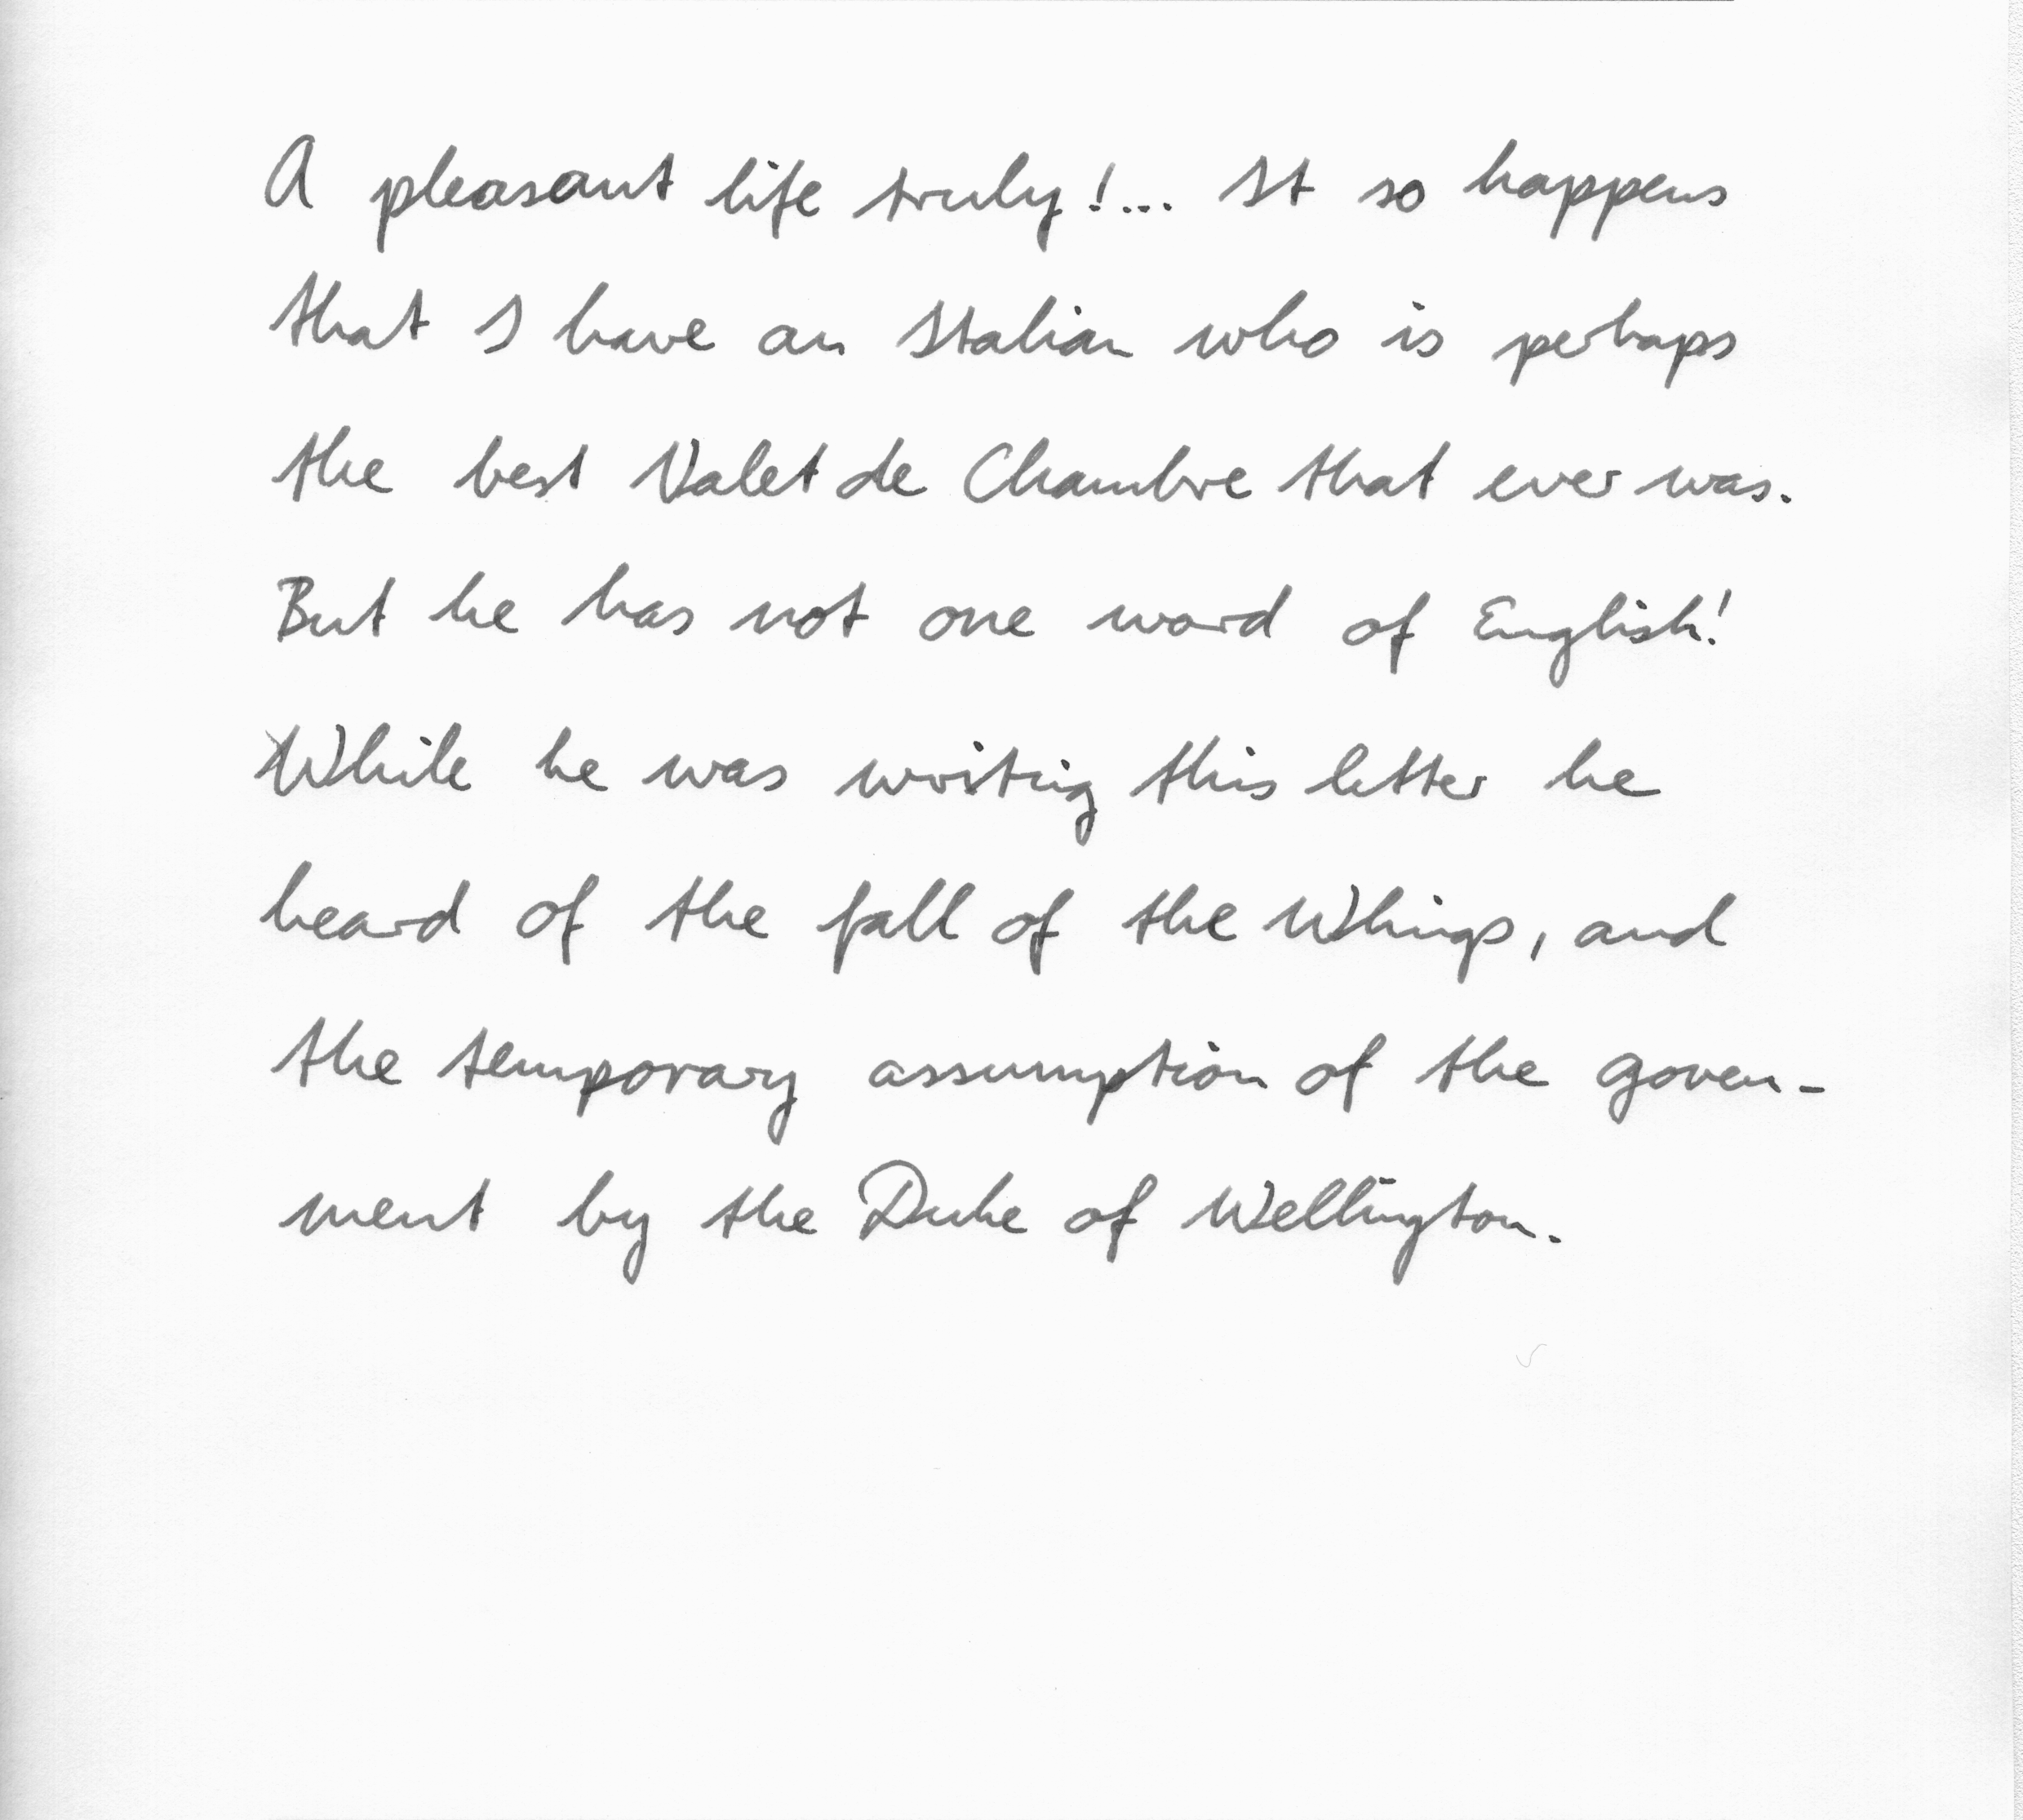 A pleasant life truly!... It so happens
that I have an Italian who is perhaps
the best Valet de Chambre that ever was.
But he has not one word of English!
While he was writing this letter he
heard of the fall of the Whings, and
the temporary assumption of the goven-
ment by the Duke of Wellington.